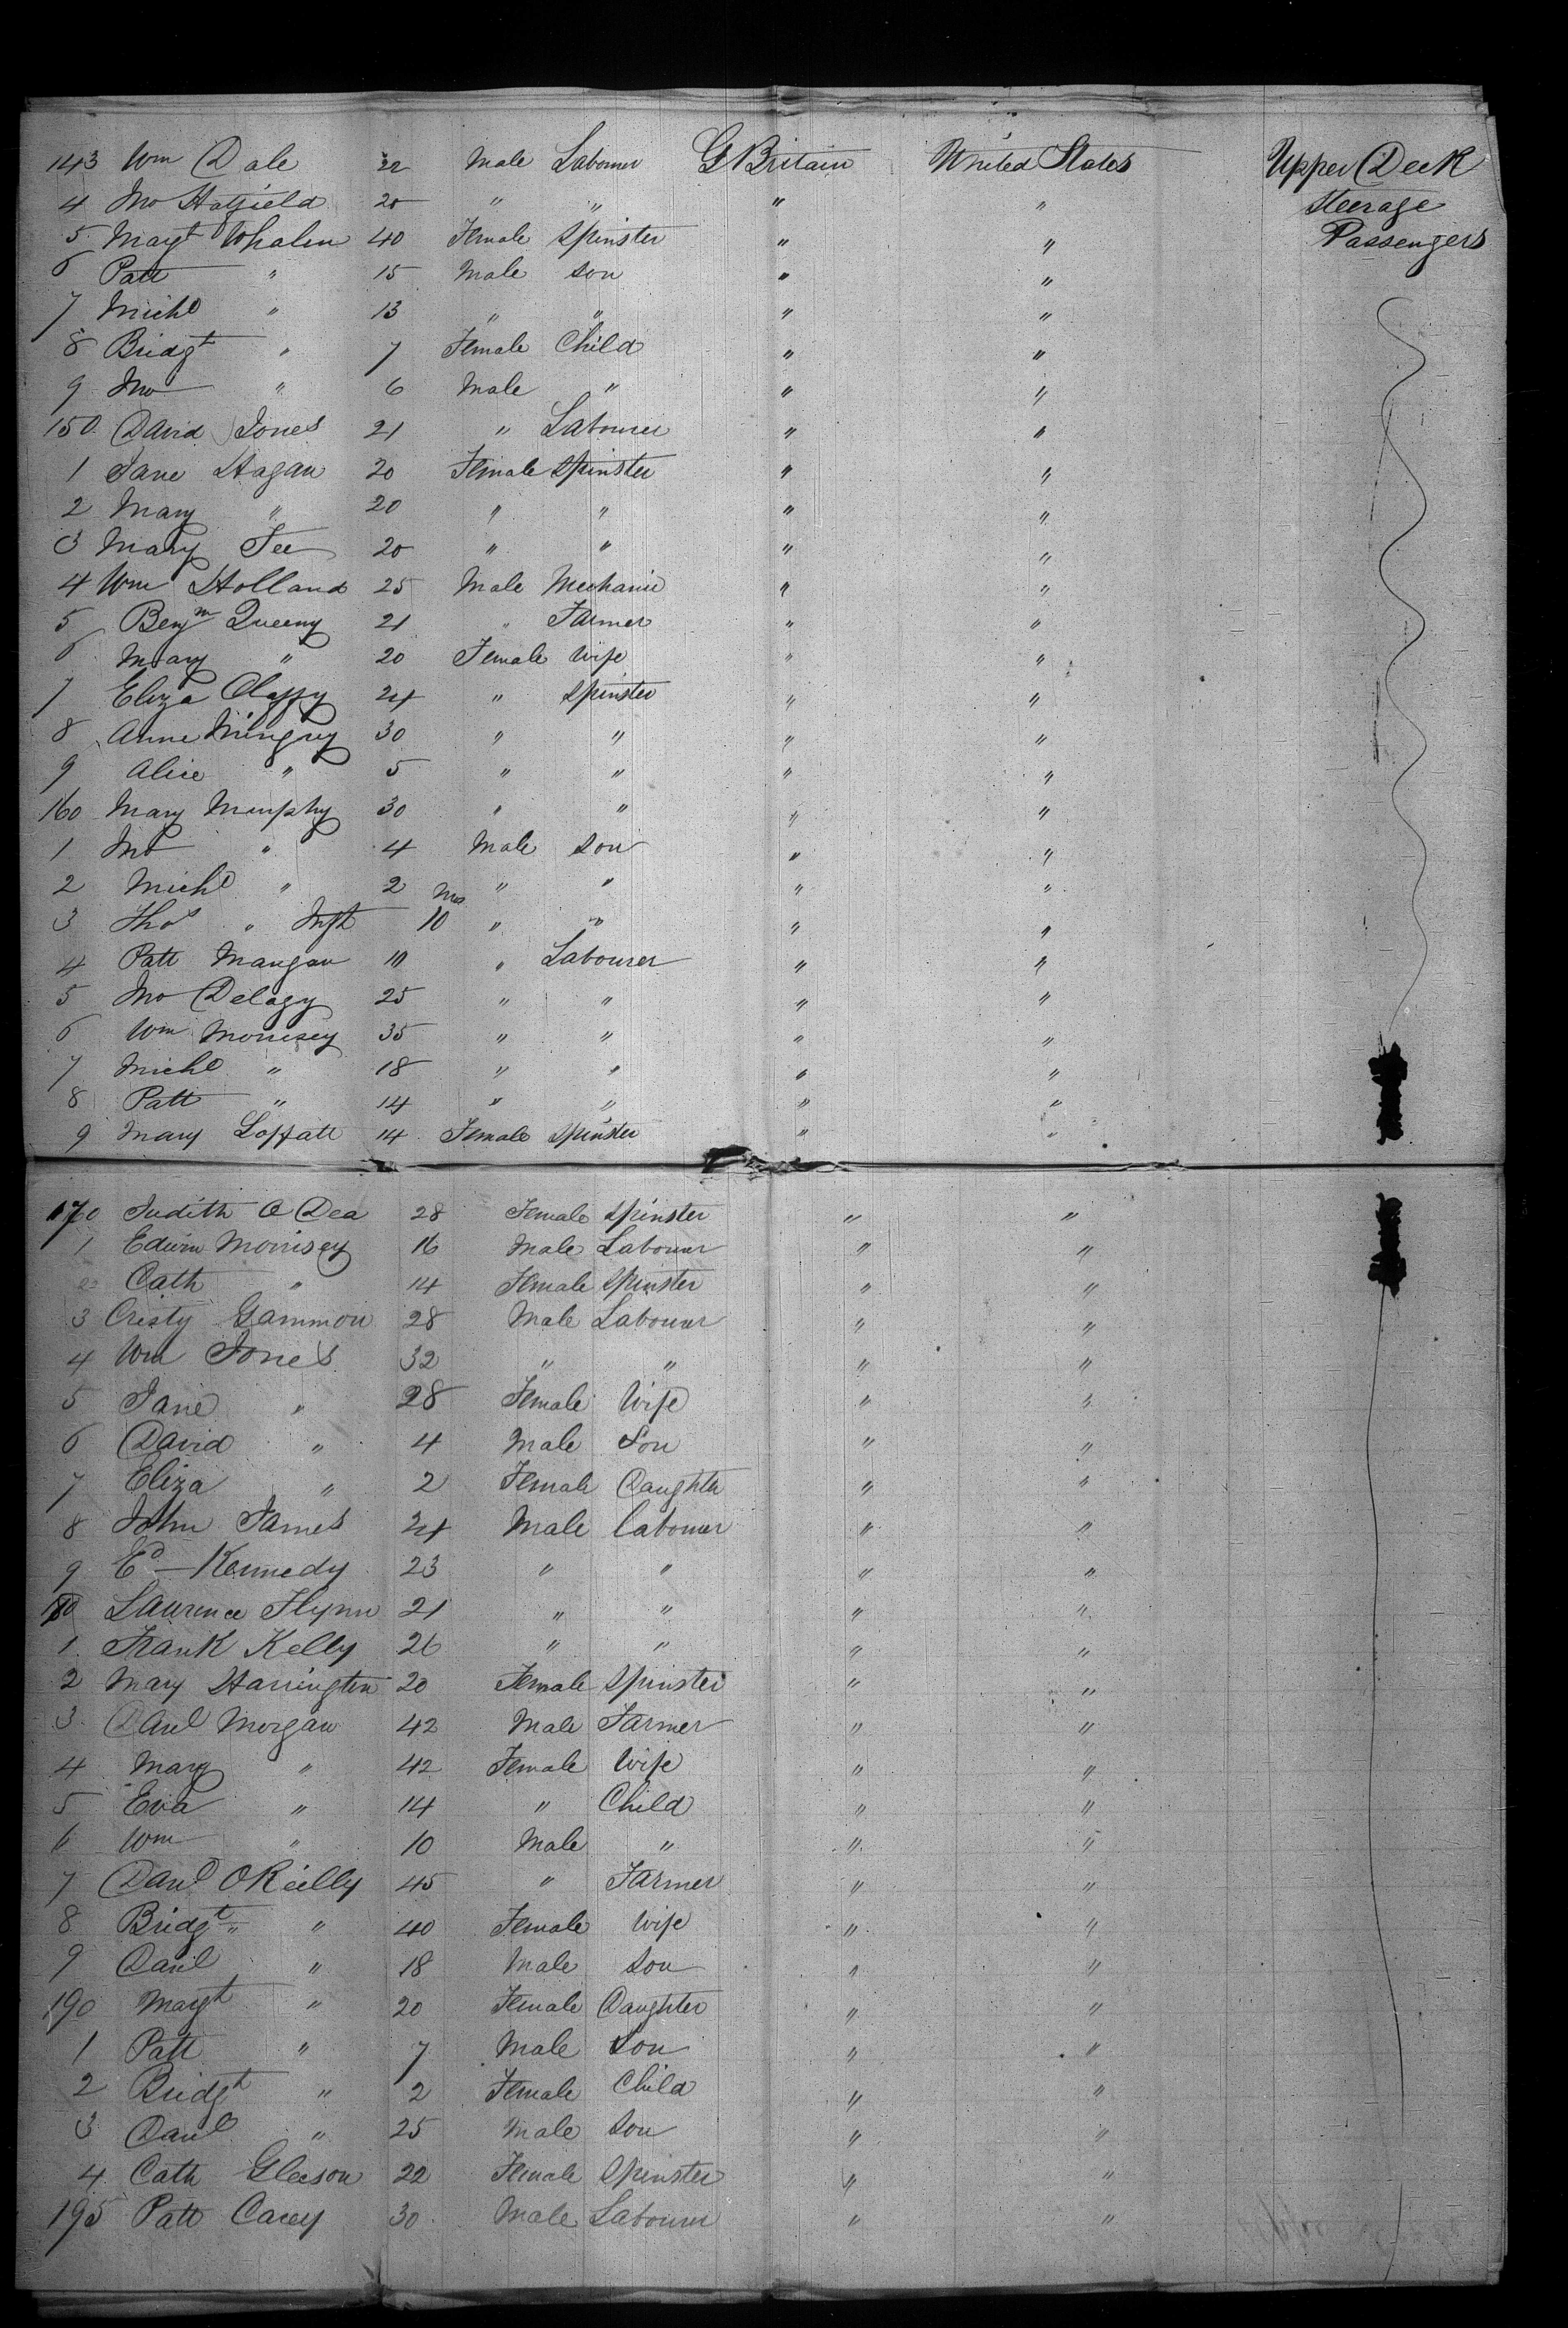 143 Wm Dale 22 Male Labourer G Britain United States Upper Deck
4 Jno Hatfield 20 " " " " Steerage
5 Margt Whalen 40 Female Spinster " " Passengers
6 Patt " 15 Male Son " "
7 Michl " 13 " " " "
8 Bridgt " 7 Female Child " "
9 Jno " 6 Male " " "
150 David Jones 21 " Labourer " "
1 Jane Hagan 20 Female Spinster " "
2 Mary " 20 " " " "
3 Mary Fee 20 " " " "
4 Wm Holland 25 Male Mechanic " "
5 Benjm Queeny 21 " Farmer " "
6 Mary " 20 Female Wife " "
7 Eliza Claffy 24 " Spinster " "
8 Anne 30 " " " "
9 Alice " 5 " " " "
160 Mary Murphy 30 " " " "
1 Jno " 4 Male Son " "
2 Michl " 2 " " " "
3 Thos " Inft 10 Mos " " " "
4 Patt Mangan " Labourer " "
5 Jno 25 " " " "
6 Wm Morrisey 35 " " " "
7 Michl " 18 " " " "
8 Patt " 14 " " " "
9 Mary 14 Female Spinster " "
170 Judith O Dea 28 Female Spinster " "
1 Edwin Morrisey 16 Male Labourer " "
2 Cath " 14 Female Spinster " "
3 Cristy Gammon 28 Male Labourer " "
4 Wm Jones 32 " " " "
5 Jane " 28 Female Wife " "
6 David " 4 Male Son " "
7 Eliza " 2 Female Daughter " "
8 John James 24 Male Labourer " "
9 Ed Kennedy 23 " " " "
180 Laurence Flynn 21 " " " "
1 Frank Kelly 26 " " " "
2 Mary Harrington 20 Female Spinster " "
3 Danl Morgan 42 Male Farmer " "
4 Mary " 42 Female Wife " "
5 Eva " 14 " Child " "
6 Wm " 10 Male " " "
7 Danl OReilly 45 " Farmer " "
8 Bridgt " " 40 Female Wife " "
9 Danl " 18 Male Son " "
190 Margt " 20 Female Daughter " "
1 Patt " 7 Male Son " "
2 Bridgt " 2 Female Child " "
3 Danl " 25 Male Son " "
4 Cath Gleeson 22 Female Spinster " "
195 Patt Casey 30 Male Labourer " "